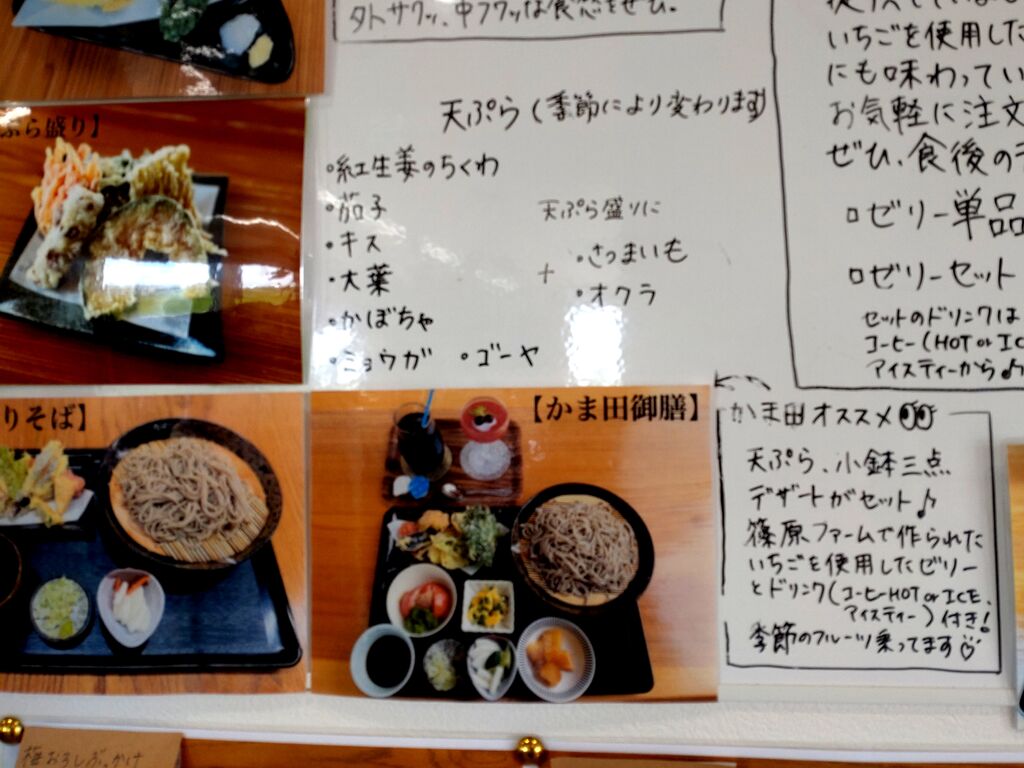 外サクッ、中フワッな食感をぜひ。
天ぷら(季節により変わります)
・紅生姜のちくわ
・茄子
・キス
・大葉
・かぼちゃ
・ミョウガ ・ゴーヤ
天ぷら盛りに
+ ・さつまいも
・オクラ
いちごを使用した
にも味わってい
お気軽に注文
ぜひ、食後の
▫ゼリー単品
▫ゼリーセット
セットのドリンクは
コーヒー(HOT or IC
アイスティーから♪
ぷら盛り】
りそば】
【かま田御膳】
かま田オススメ
天ぷら、小鉢三点
デザートがセット♪
篠原ファームで作られた
いちごを使用したゼリー
とドリンク(コーヒーHOT or ICE、
アイスティー)付き!
季節のフルーツ乗ってます♡
梅おろしぶっかけ